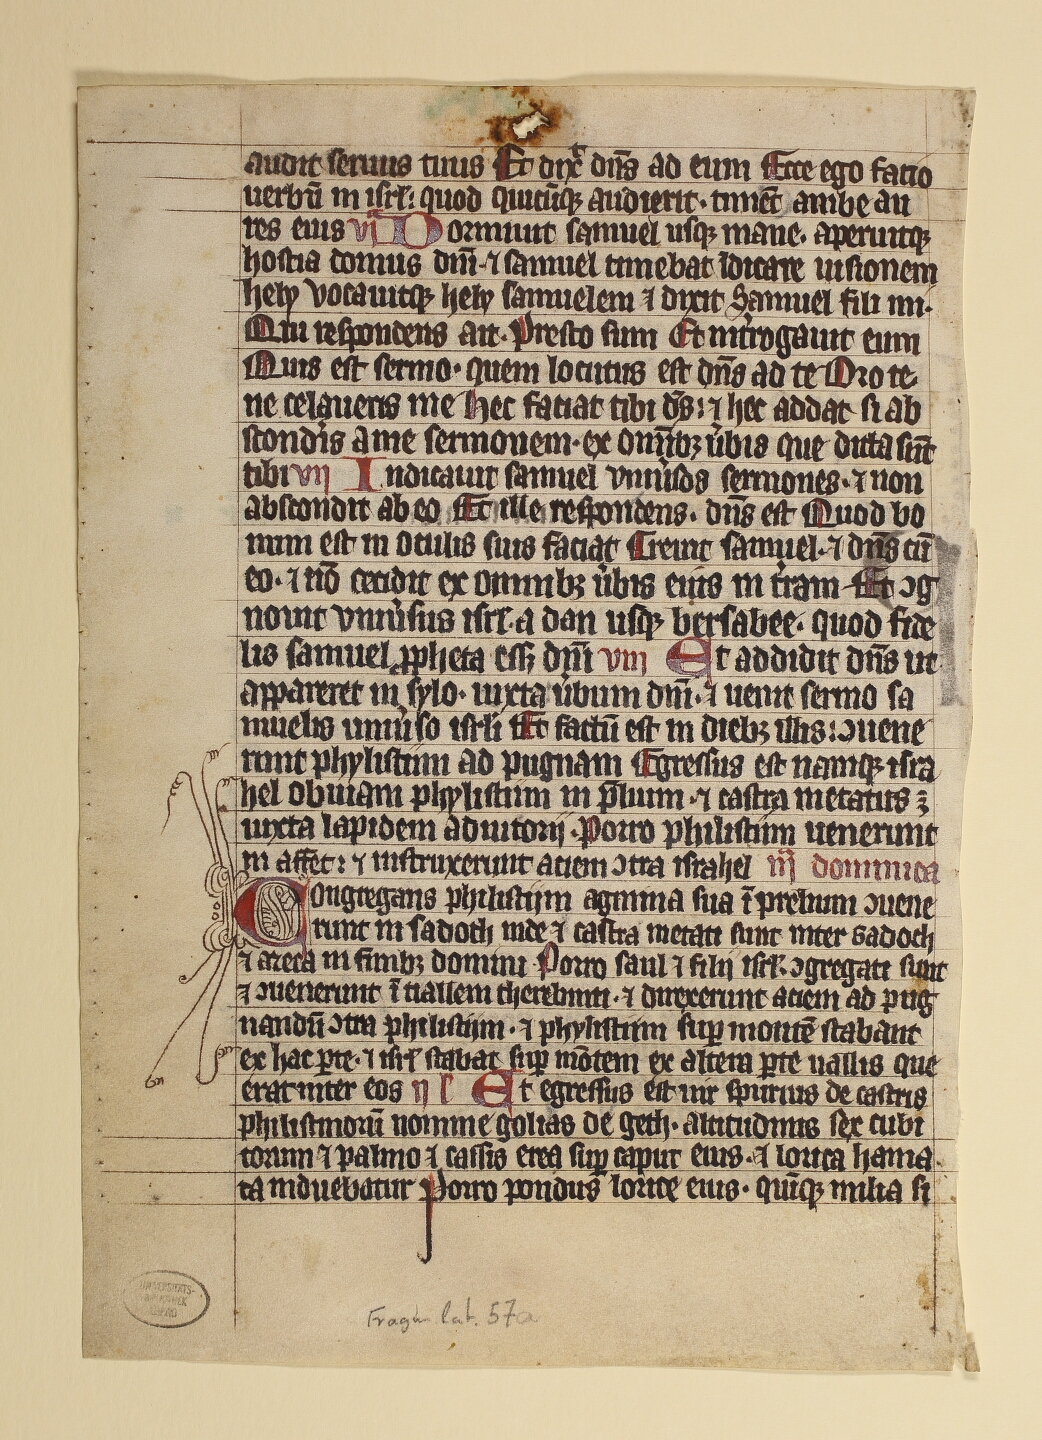 audit seruus tuus Et dix̄ dn̄s ad eum Ecce ego facio
uerbū in isrl̄: quod quicūq; audierit· tinnēt ambe au
res eius vi Dormiuit samuel usq; mane· aperuitq;
hostia domus dn̄i· ⁊ samuel timebat īdicare uisionem
hely vocauitq; hely samuelem ⁊ dixit Samuel fili mi·
Qui respondens ait· Presto sum Et int̉rogauit eum
Quis est sermo· quem locutus est dn̄s ad te Oro te·
ne celaueris me Hec faciat tibi ds̄: ⁊ hec addat si ab
scondis̉ a me sermonem· ex om̄ib; ủbis que dicta sūt
tibi vii Indicauit samuel vniủsos sermones· ⁊ non
abscondit ab eo Et ille respondens· dn̄s est Quod bo
num est in oculis suis faciat Creuit samuel· ⁊ dn̄s cū
eo· ⁊ nō cecidit ex omnib; ủbis eius in t̉ram Et ↄg
nouit vniủsus isrl̄· a dan usq; bersabee· quod fide
lis samuel ꝓpheta eēt dn̄i viii Et addidit dn̄s ut
appareret in sylo· iuxta ủbum dn̄i· ⁊ uenit sermo sa
muelis uniủso isrl̄i Et factū est in dieb; illis: ↄuene
runt phylistiim ad pugnam Egressus est namq; isra
hel obuiam phylistiim in p̄lium· ⁊ castra metatus ē
iuxta lapidem adiutorij· Porro philistiim uenerunt
in affec: ⁊ instruxerunt aciem ↄtra israhel iij dominica
Congregans philistijm agmina sua ī prelium ↄuene
runt in sadoch inde ⁊ castra metati sunt inter sadoch
⁊ azeca in finib; domini Porro saul ⁊ filij isrl̄· ↄgregati sunt
⁊ ↄuenerunt ī uallem therebinti· ⁊ direxerunt aciem ad pug
nandū ↄtra philistijm· ⁊ phylistiim sup̄ montē stabant
ex hac ꝑte· ⁊ isrl̄ stabat sup̄ mōtem ex altera ꝑte uallis que
erat inter eos ij l Et egressus est uir spurius de castris
philistinorū nomine golias de geth· altitudinis sex cubi
torum ⁊ palmo ⁊ cassis erea sup̄ caput eius· ⁊ lorica hama
ta induebatur Porro pondus lorice eius· quīq; milia si
UNIVERSITÄTS-
BIBLIOTHEK
LEIPZIG
Fragm. lat. 57a